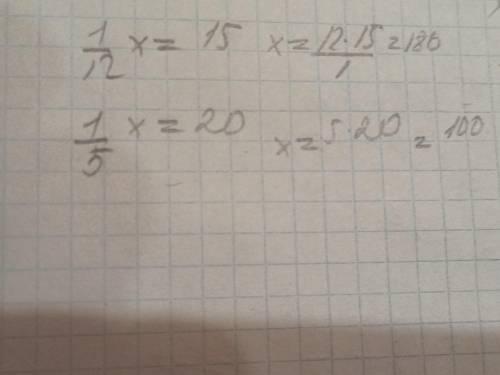 1/12 x = 15 x = 12·15/1 = 180
1/5 x = 20 x = 5·20 = 100